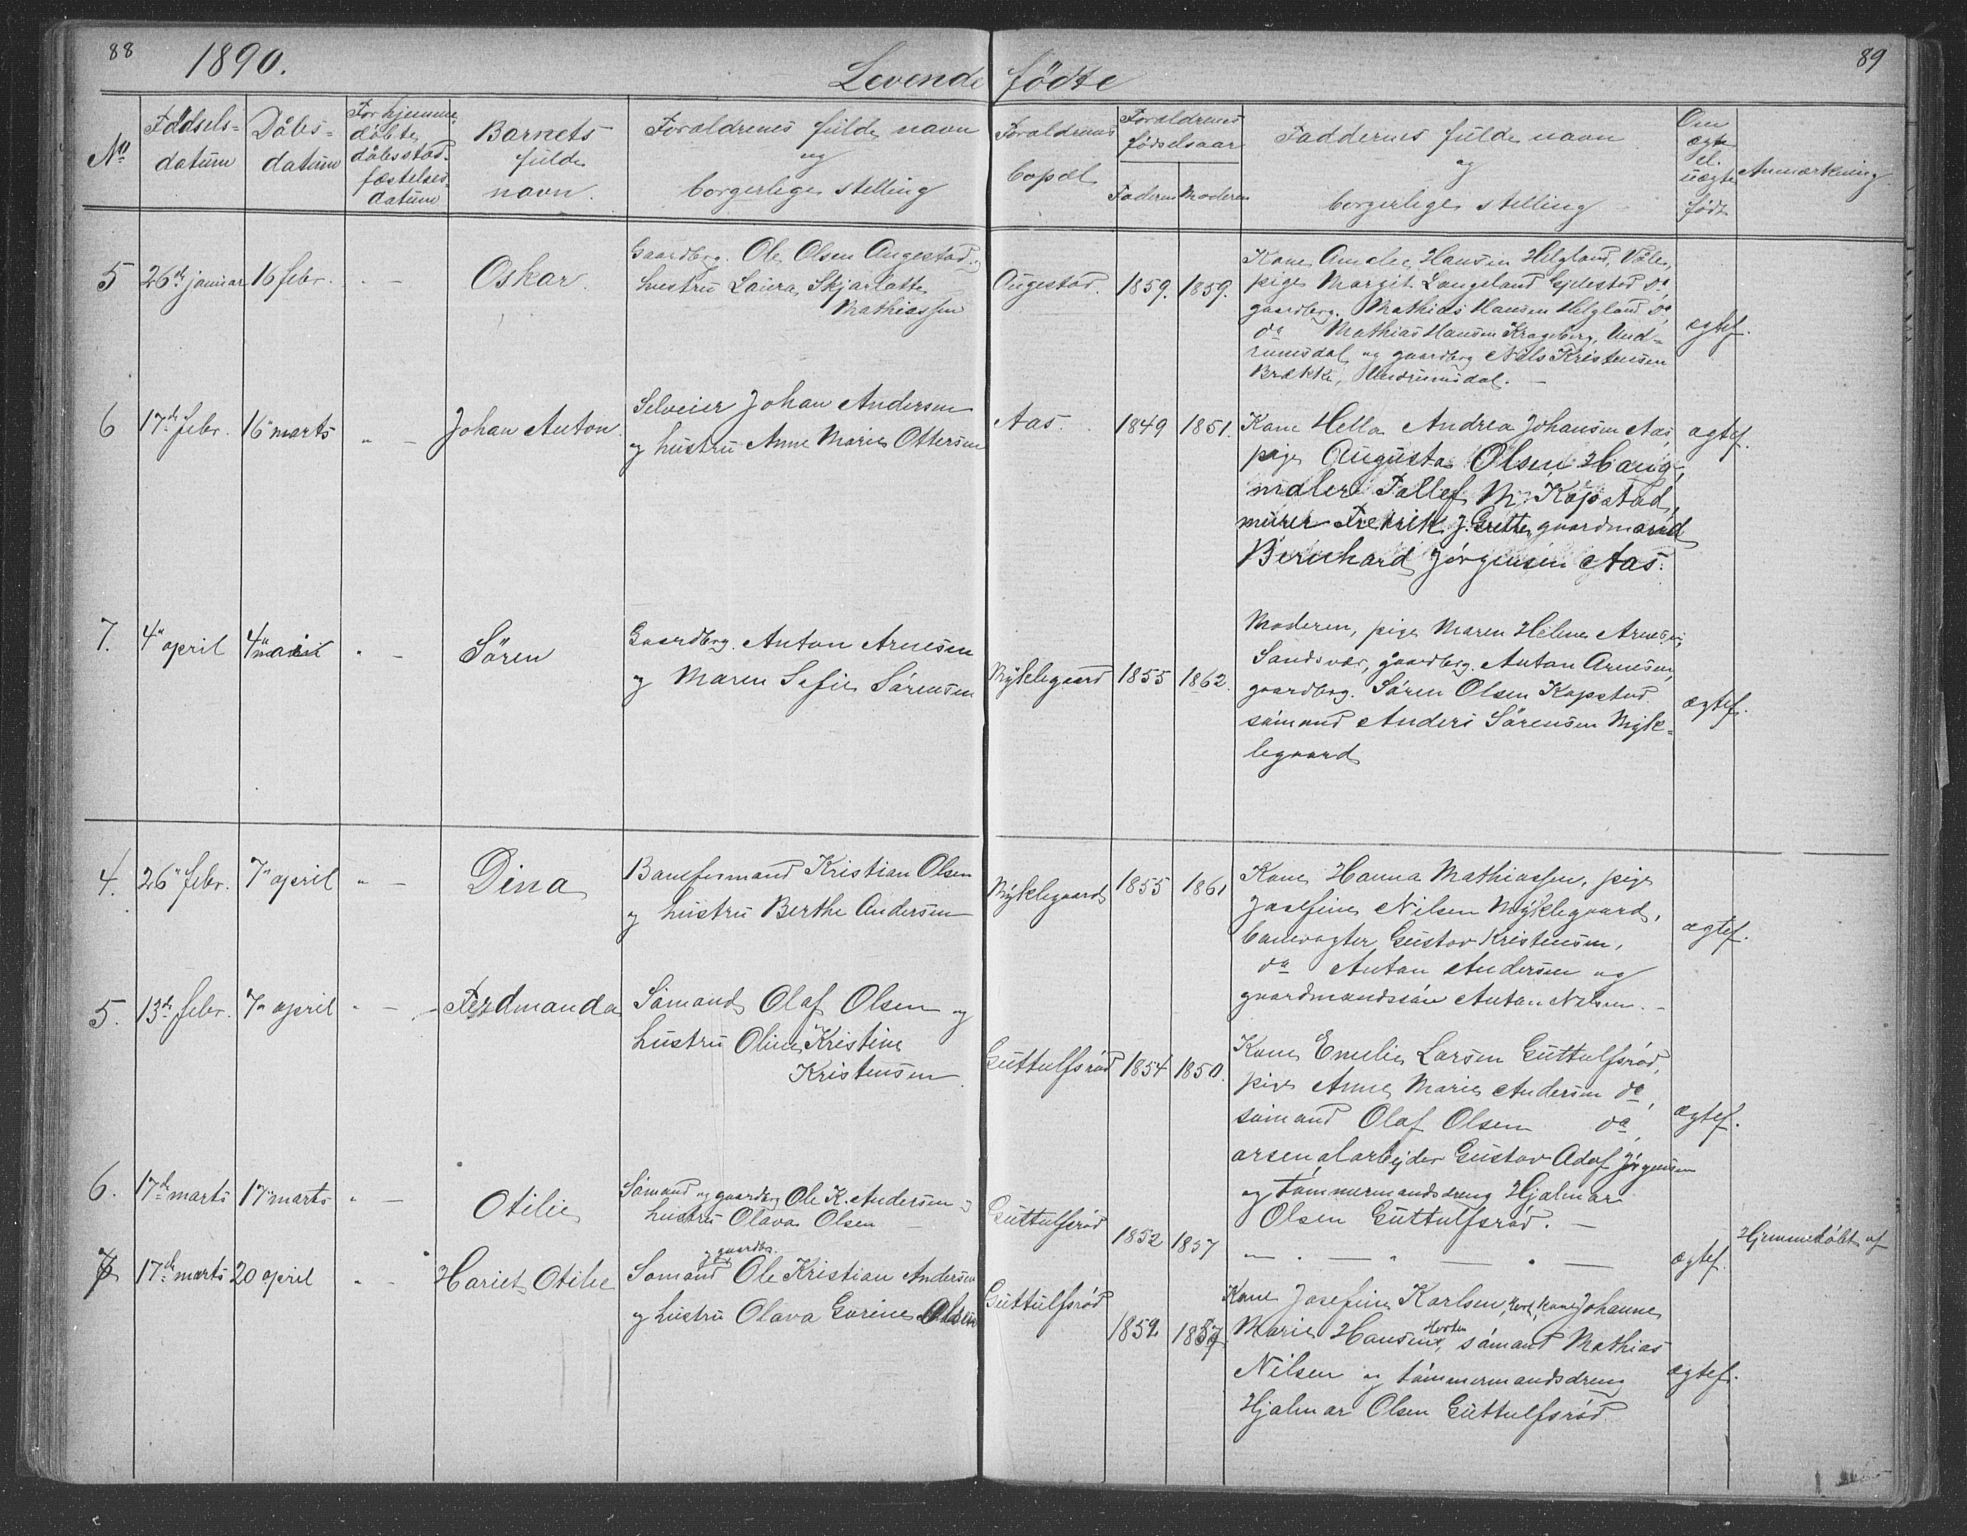 88
1890.
Levende fødte
89
No
Fødsels-
datum
Dåbs-
datum
For hjemme
døbte,
dåbsstad.
fæstelses-
datum
Barnets
fulde
navn.
Forældrenes fulde navn
og
borgerlige stelling
Forældrenes
bopæl
Forældrenes
fødselsaar
Faderen Moderen
Faddernes fulde navn
og
borgerlige stelling
Om
ægte
el.
uægte
født
Anmærkning
5 26de januar 16 febr. " — Oskar.
Gaardbrg. Ole Olsen Augestad og
hustru Laura Skjarlatte
Mathiassen
Augestad. 1859. 1859.
Kone Amelie Hansen Helgland, Våle,
pige Margit Langeland Gjelestad Do,
gaardbrg. Mathias Hansen Helgland Do,
do Mathias Hansen Krageberg, Und-
rumsdal og gaardbrg Nils Kristensen
Brække, Undrumsdal. —
ægtef.
6 17de febr. 16 marts " — Johan Anton.
Selveier Johan Andersen
og hustru Anne Marie Ottersen
Aas. 1849 1851.
Kone Hella Andrea Johansen Aas,
pige Augusta Olsen Haug,
maler Tallef M. Kopstad,
murer Fredrik J. Grette, gaardmand
Bernhard Jørgensen Aas.
ægtef.
7. 4" april 4" " — Sören
Gaardbrg. Anton Arnesen
og Maren Sofie Sørensen
Myklegaard 1855 1862.
Moderen, pige Maren Heline Arnesen,
Sandsvær, gaardbrg. Anton Arnesen,
gaardbrg. Sören Olsen Kopstad
sömand Anders Sörensen Myk-
legaard
ægtef.
4. 26" febr. 7" april " — Dina
Baneformand Kristian Olsen
og hustru Berthe Andersen
Myklegaard 1855 1861
Kone Hanna Mathiassen, pige
Josefine Nilsen Myklegaard,
banevagter Gustav Kristensen,
do Anton Andersen og
gaardmandssön Anton Nilsen. —
ægtef.
5. 13de febr. 7" april " — Ferdinanda
Sömand Olaf Olsen og
hustru Oline Kristine
Kristensen
Guttulfsrød 1854 1850.
Kone Emelie Larsen Guttulfsrød,
pige Anne Marie Andersen do,
sömand Olaf Olsen do,
arsenalarbejder Gustav Adolf Jörgensen
og tömmermandsdreng Hjalmar
Olsen Guttulfsrød. —
ægtef.
6. 17de marts 17 marts " — Otilie
Sömand og gaardbrg Ole K. Andersen og
hustru Olava Olsen —
Guttulfsrød 1852 1857
— " — " — " —
ægtef.
Hjemmedöbt af
7 17de marts 20 april " — Hariet Otilie
og gaardbr.
Sömand Ole Kristian Andersen
og hustru Olava Gurine Olsen
Guttulfsrød 1852 1857
Kone Josefine Karlsen, Hort, kone Johanne
Marie Hansen, Horten, sömand Mathias
Nilsen og tömmermandsdreng
Hjalmar Olsen Guttulfsrød.
ægtef.